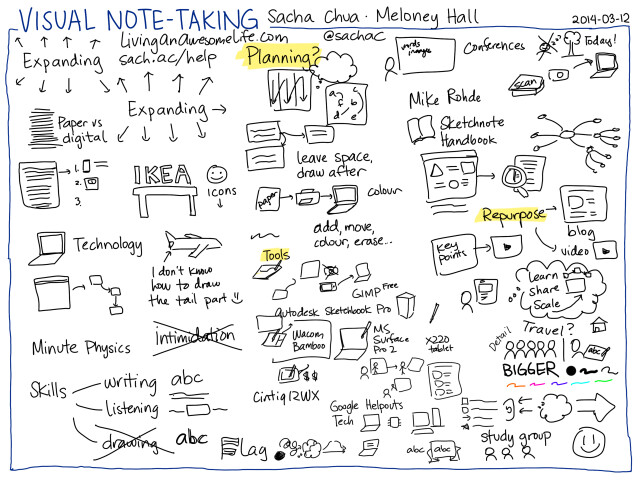 VISUAL NOTE-TAKING Sacha Chua · Meloney Hall 2014-03-12
LivingAnAwesomeLife.com @sachac
sach.ac/help
Expanding
Expanding
Paper vs
digital
1.
2.
3.
IKEA
icons
Technology
I don't know
how to draw
the tail part
Minute Physics
Intimidation
Skills
writing abc
listening
drawing abc
Planning?
a c
f b
d e
leave space,
draw after
paper
colour
add, move,
colour, erase...
Tools
GIMP Free
Autodesk Sketchbook Pro
Wacom
Bamboo
MS
Surface
Pro 2
X220
tablet
Cintiq 12WX
$$
Google Helpouts
Tech
Lag
abc abc
words
images
Conferences
Today!
scan
Mike Rohde
Sketchnote
Handbook
Repurpose
blog
video
key
points
learn
share
scale
Detail
Travel?
abc
BIGGER
study group